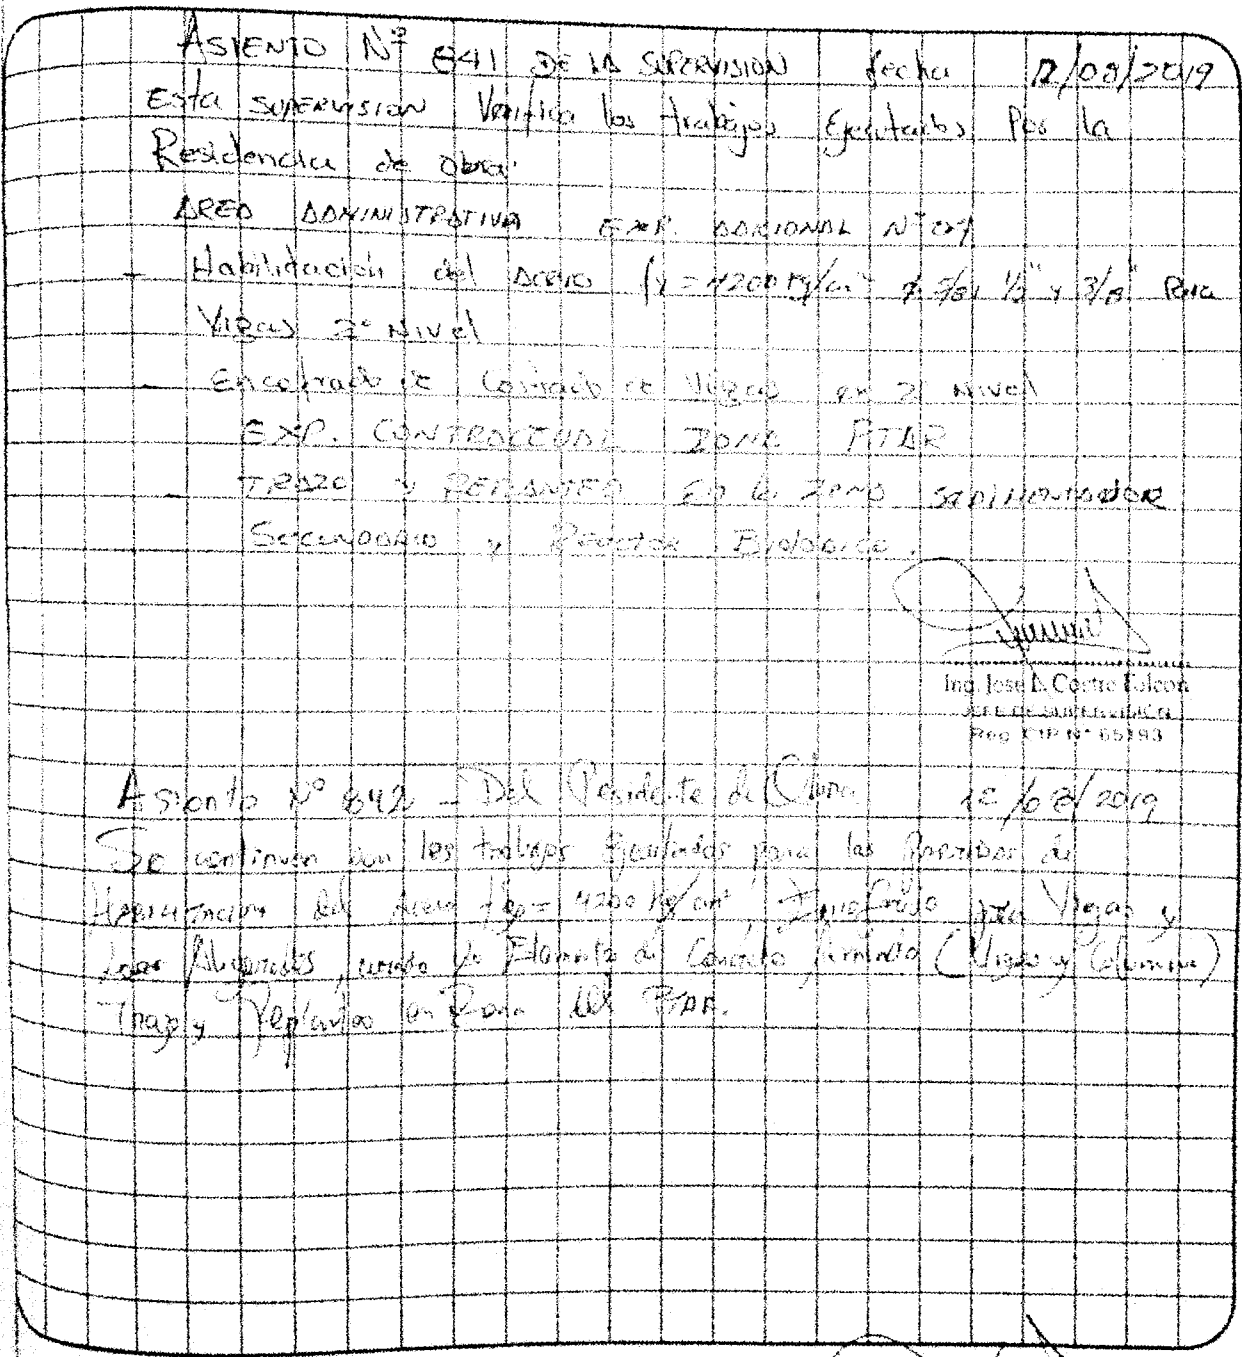 ASIENTO Nº 641 DE LA SUPERVISION fecha 12/08/2019
Esta SUPERVISION Verifica los trabajos Ejecutados Por la
Residencia de Obra:
AREA ADMINISTRATIVA EXP. ADICIONAL Nº 04
- Habilitación del ACERO fy = 4200 kg/cm² ø 5/8, 1/2" y 3/8" Para
Vigas 2º Nivel
- Encofrado de Costado de Vigas en 2º Nivel
EXP. CONTRACTUAL ZONA PTAR
- TRAZO Y REPLANTEO En la ZONA SEDIMENTADOR
SECUNDARIO y Reactor Biologico.
Ing. Jose Castro Falcon
JEFE DE SUPERVISIÓN
Reg. CIP Nº
Asiento Nº 642 - Del Residente de Obra 12/08/2019
Se continuan con los trabajos Ejecutados para las Partidas de
Habilitacion del Acero fy = 4200 kg/cm², Encofrado para Vigas y
Aligerados, curado de Elemento de Concreto Armado (Vigas y Columna)
Trazo y Replanteo en Zona del PTAR.